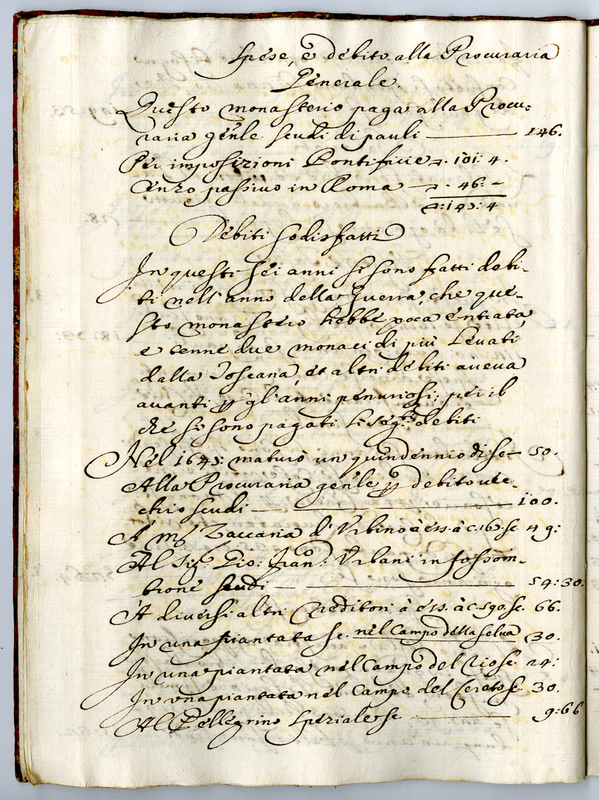 Spese, e debito alla Procuraria
Generale.
Questo monasterio paga alla Procu:
raria gn̄le scudi di pauli — 146.
Per imposizioni Pontificie 101: 4.
Cenzo passivo in Roma — 46: –
: 147: 4
Debiti sodisfatti
In questi sei anni si sono fatti debi-
ti nell'anno della Guerra, che que-
sto monasterio hebbe poca entrata,
e cenne due monaci di più levati
dalla Toscana, et altri debiti aveva
avanti p gl'anni penuriosi; per il
che si sono pagati li seg.ti debiti
Nel 1645: maturò un quindennio di se — 50.
Alla Procuraria gen̄le p debito vec-
chio scudi — 100.
A mr Zaccaria d'Urbino se 49:
Al Sigr Gio: Fran.o Urbani in fossom-
brone scudi — 54:30.
A diversi altri Creditori se. 66.
In una piantata se. nel Campo della selva 30.
In una piantata nel Campo del Rio se 24:
In una piantata nel Campo del Cerreto se 30.
Al Pellegrino speziale se — 9:66